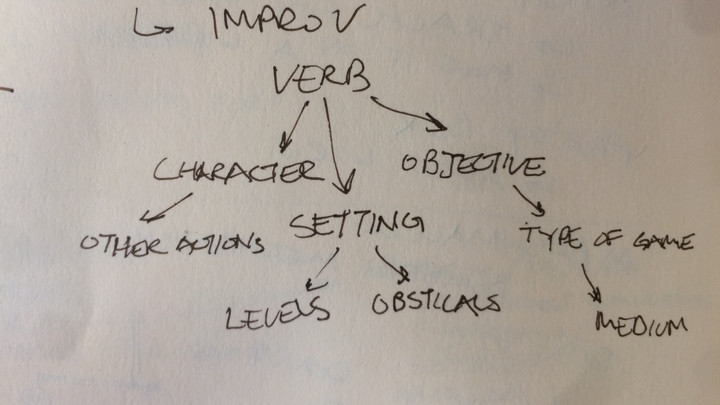 IMPROV
VERB
CHARACTER
OBJECTIVE
OTHER ACTIONS
SETTING
TYPE OF GAME
LEVELS
OBSTICALS
MEDIUM